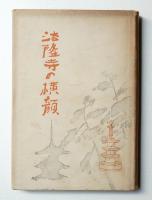 法隆寺の横顔